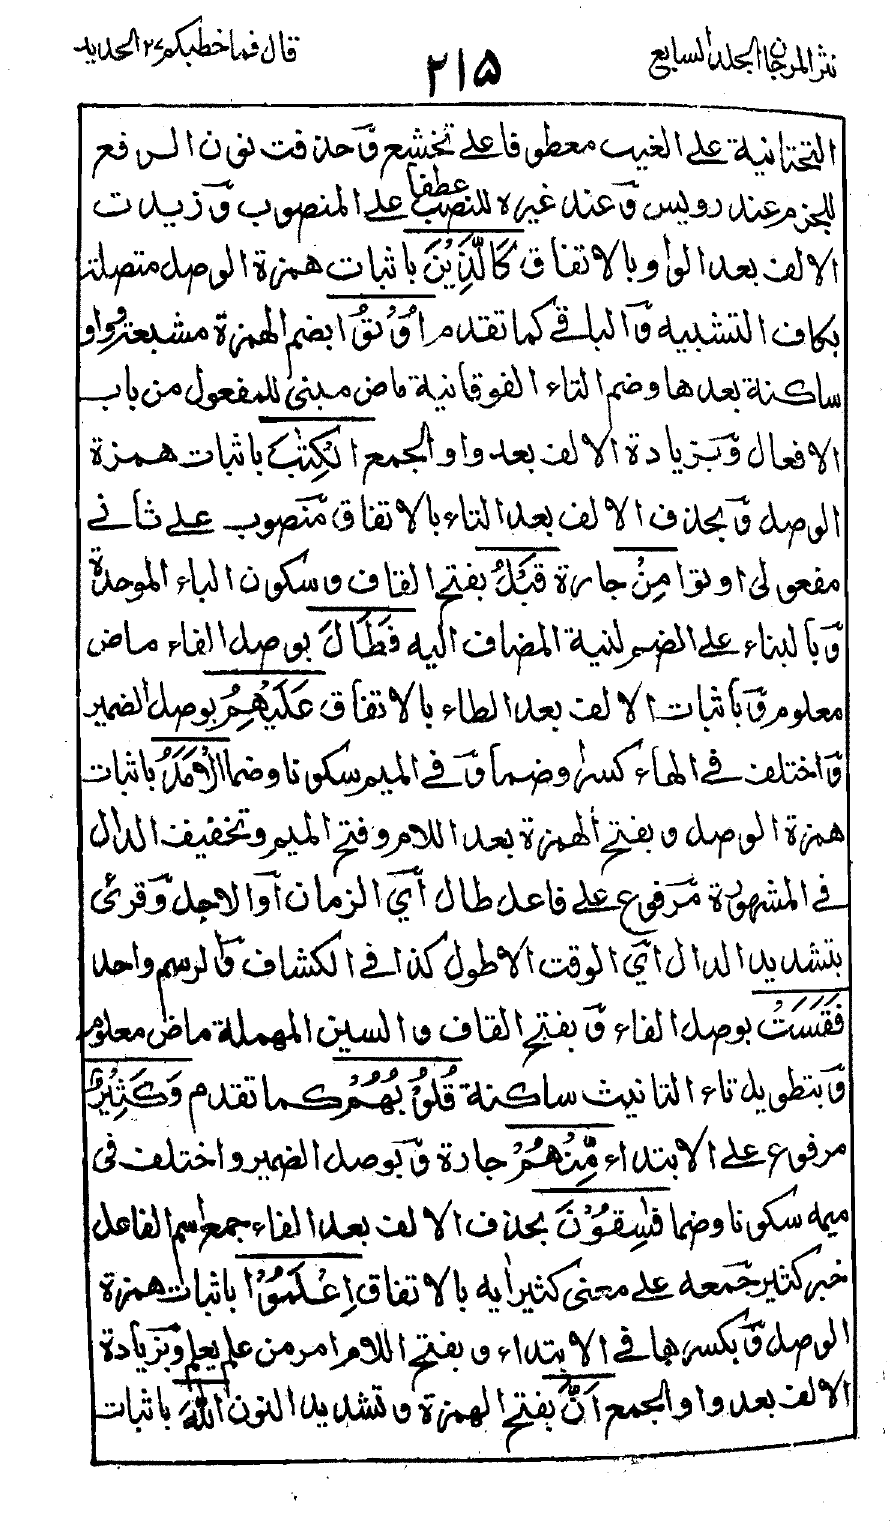 نثر المرجان الجلد السابع
٢١٥
قال فما خطبكم ٢٧ الحديد
التحتانية على الغيب معطوفا على تخشع وحذفت نون الرفع
للجزم عند رويس وعند غيره للنصب عطفا على المنصوب وزيدت
الالف بعد الواو بالاتفاق كَالَّذِيْنَ باثبات همزة الوصل متصلة
بكاف التشبيه والباقي كما تقدم اُوْتُوْا بضم الهمزة مشبعة وواو
ساكنة بعدها وضم التاء الفوقانية ماض مبني للمفعول من باب
الافعال وبزيادة الالف بعد واو الجمع الْكِتٰبَ باثبات همزة
الوصل وبحذف الالف بعد التاء بالاتفاق منصوب على ثاني
مفعولى اوتوا مِنْ جارة قَبْلُ بفتح القاف وسكون الباء الموحدة
وبالبناء على الضم لنية المضاف اليه فَطَالَ بوصل الفاء ماض
معلوم وباثبات الالف بعد الطاء بالاتفاق عَلَيْهِمُ بوصل الضمير
واختلف في الهاء كسرا وضما وفي الميم سكونا وضما الْاَمَدُ باثبات
همزة الوصل وبفتح الهمزة بعد اللام وفتح الميم وتخفيف الدال
في المشهورة مرفوع على فاعل طال اي الزمان او الاجل وقرئ
بتشديد الدال اي الوقت الاطول كذا في الكشاف والرسم واحد
فَقَسَتْ بوصل الفاء وبفتح القاف والسين المهملة ماض معلوم
وبتطويل تاء التانيث ساكنة قُلُوْبُهُمْ كما تقدم وَكَثِيْرٌ
مرفوع على الابتداء مِّنْهُمْ جارة وبوصل الضمير واختلف في
ميمه سكونا وضما فٰسِقُوْنَ بحذف الالف بعد الفاء جمع اسم الفاعل
خبر كثير جمعه على معنى كثير ايه بالاتفاق اِعْلَمُوْٓا باثبات همزة
الوصل وبكسرها في الابتداء وبفتح اللام امر من علم يعلم وبزيادة
الالف بعد واو الجمع اَنَّ بفتح الهمزة وتشديد النون اللّٰهَ باثبات